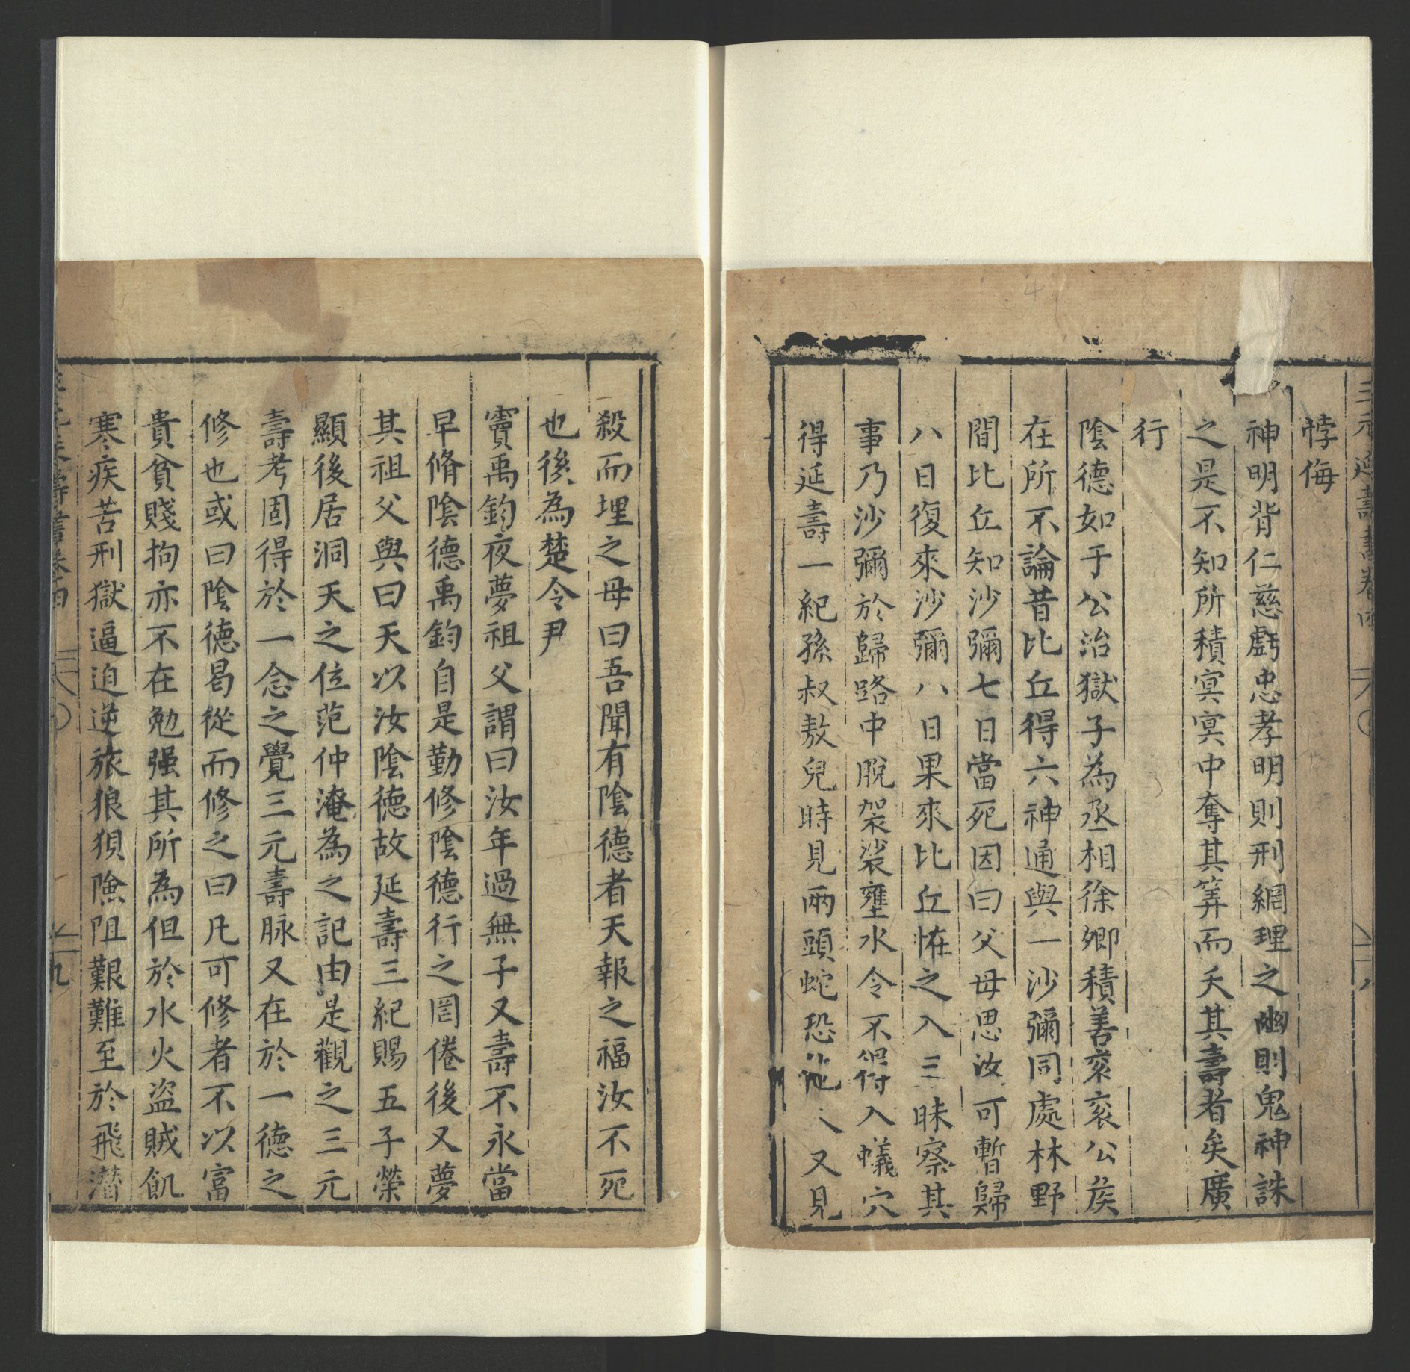 三元延壽書卷四
悖侮
神明背仁慈虧忠孝明則刑網理之幽則鬼神誅
之是不知所積㝠㝠中奪其筭而夭其壽者矣廣
行
陰德如于公治獄子為丞相徐卿積善衮衮公侯
在所不論昔比丘得六神通與一沙彌同處林野
間比丘知沙彌七日當死因曰父母思汝可暫歸
八日復來沙彌八日果來比丘恠之入三昧察其
事乃沙彌於歸路中脫袈裟壅水令不得入蟻穴
得延壽一紀孫叔敖兒時見兩頭蛇恐他人又見
殺而埋之母曰吾聞有陰德者天報之福汝不死
也後為楚令尹
竇禹鈞夜夢祖父謂曰汝年過無子又壽不永當
早脩陰德禹鈞自是勤修陰德行之罔倦後又夢
其祖父與曰天以汝陰德故延壽三紀賜五子榮
顯後居洞天之位范仲淹為之記由是觀之三元
壽考固得於一念之覺三元壽脉又在於一德之
修也或曰陰德曷從而修之曰凡可修者不以富
貴貧賤拘亦不在勉强其所為但於水火盜賊飢
寒疾苦刑獄逼迫逆旅狼狽險阻艱難至於飛潛
壽書卷四 九